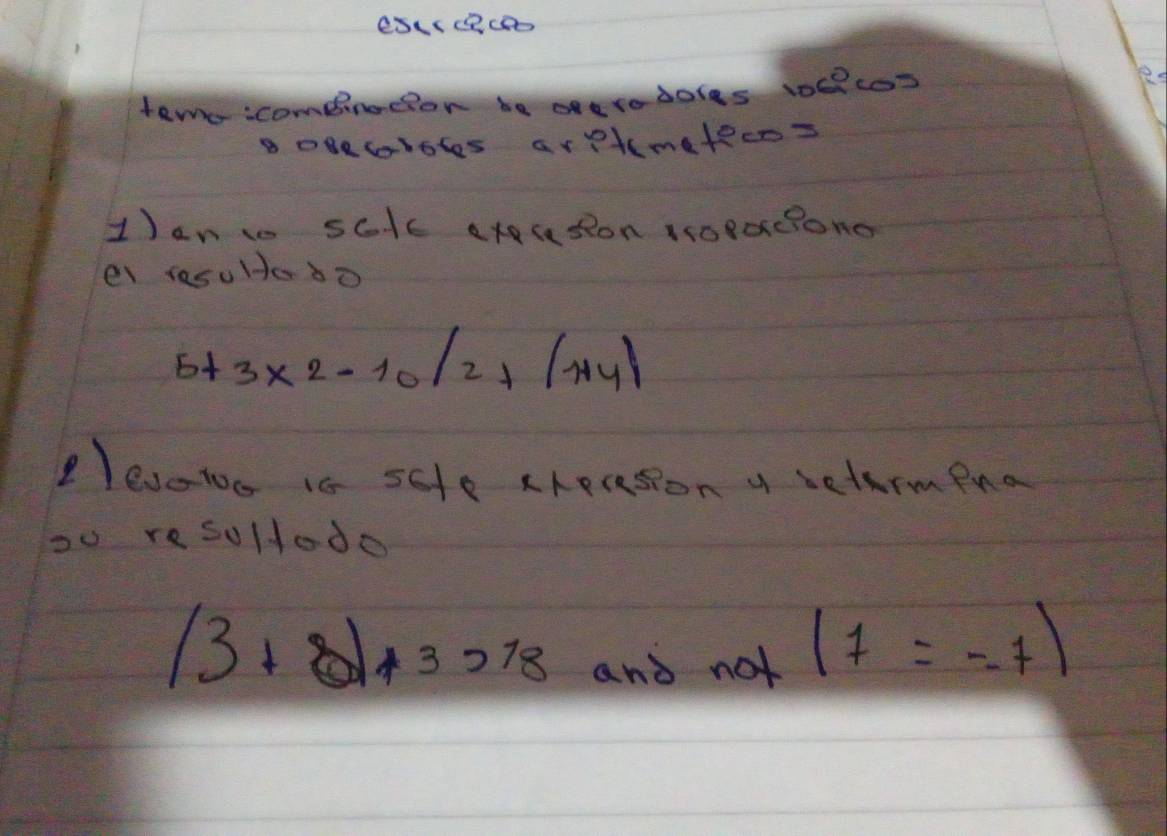 ejercicio
tema: combinacion de operadores logicos
y operadores aritemeticos
1) en la sete expresion proporciona
el resultado
5+3x2-10/2+(1+4)
2) evalua la sete expresion y determina
su resultado
(3+8)*3>18 and not (7=-7)